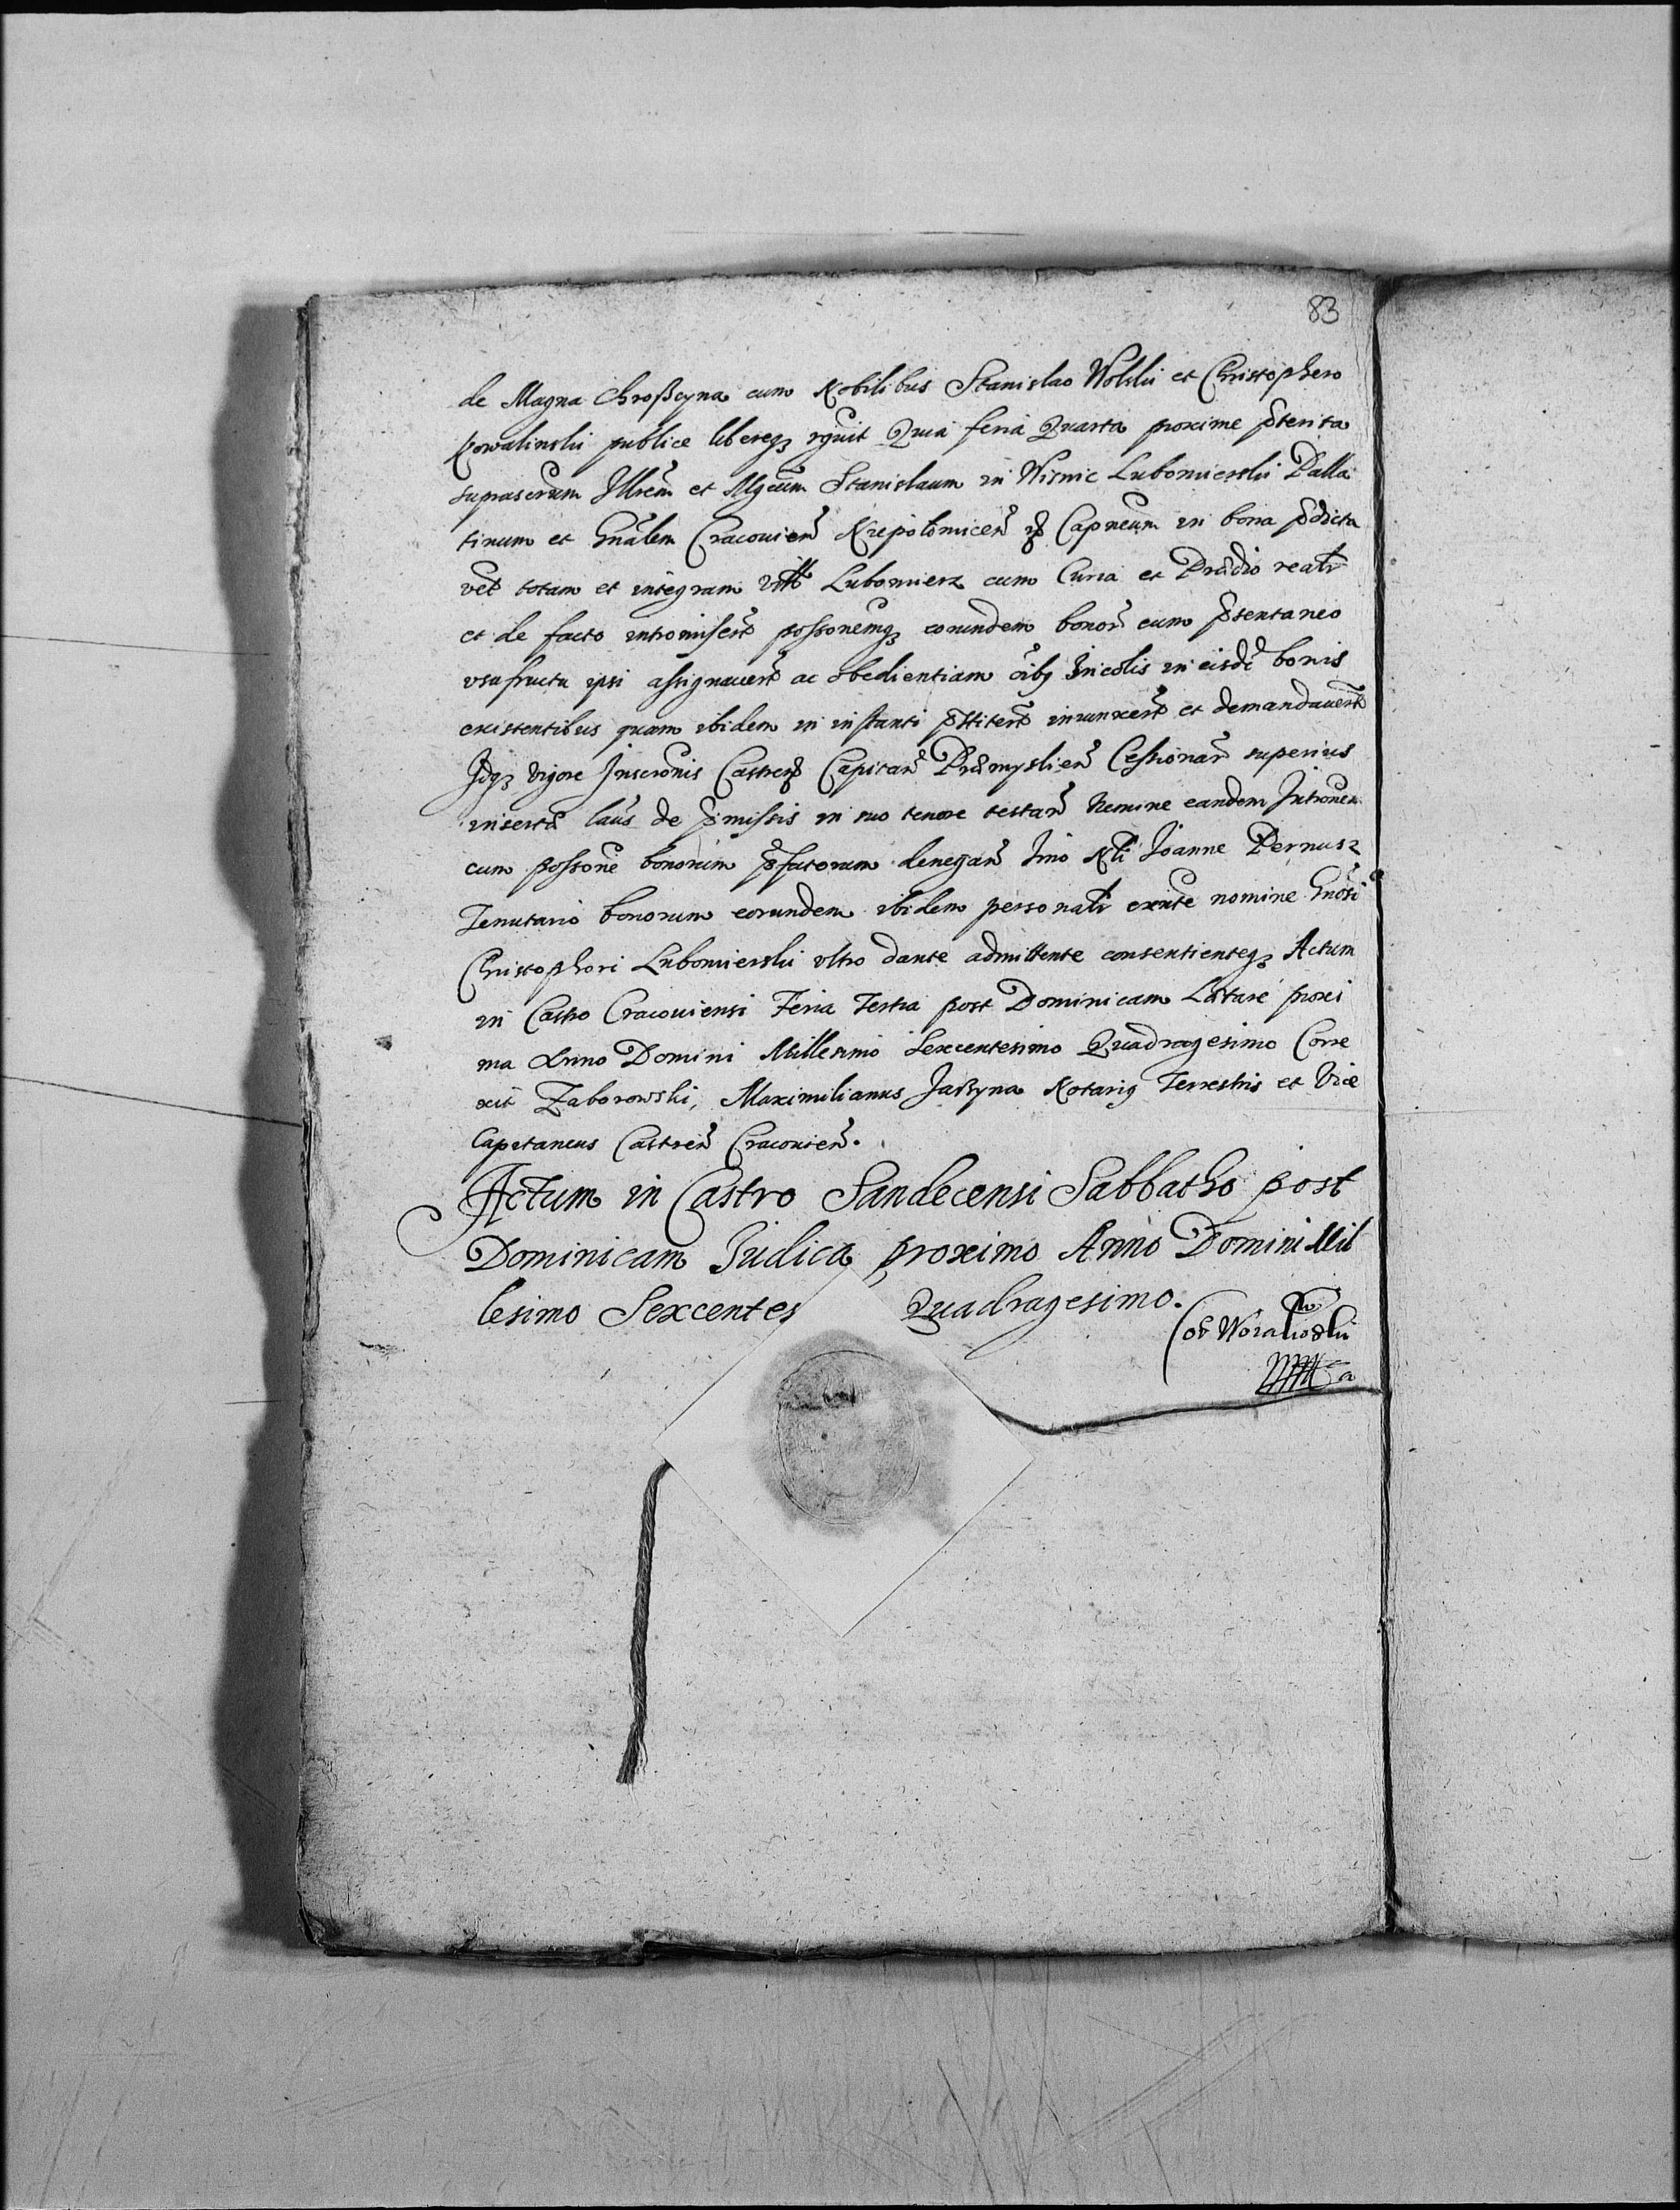 83
de Magna Chroßcyna cum Nobilibus Stanislao Wolski et Christophero
Kowalinski publice libereq3 rgvit Quia feria Quarta proxime pterita
suprascrum Illrem et Mgcum Stanislaum in Wisnic Lubomierski Palla
tinum et Gnalem Cracovien Niepolomicen Capneum in bona pdicta
vet totam et integram vill Lubomierz cum Curia et Prædio realr
et de facto intromisert possonemq3 eorundem bonor cum psentaneo
vsufructu ipsi assignavert ac obedientiam oibg Incolis in eisde bonis
existentibus quam ibidem in instanti pstitert iniunxert et demandavert
Idq3 vigore Inscronis Castren Capitan Præmyslien Cessionar superius
inserta laus de pmissis in suo tenore testan Nemine eandem Intromen
cum possone bonorum pfatorum denegan Imo Nli Joanne Pernusz
Tenutario bonorum eorundem ibidem personalr exnte nomine Gnosi
Christophori Lubomierski vltro dante admittente consentienteq3 Actum
in Castro Cracoviensi Feria Tertia post Dominicam Lætare proxi
ma Anno Domini Millesimo Sexcentesimo Quadragesimo Corre
xit Zaborowski, Maximilianus Jaktyna Notarig Terrestris et Vice
Capitaneus Castren Cracovien.
Actum in Castro Sandecensi Sabbatho post
Dominicam Judica proximo Anno Domini Mil
lesimo Sexcentes Quadragesimo.